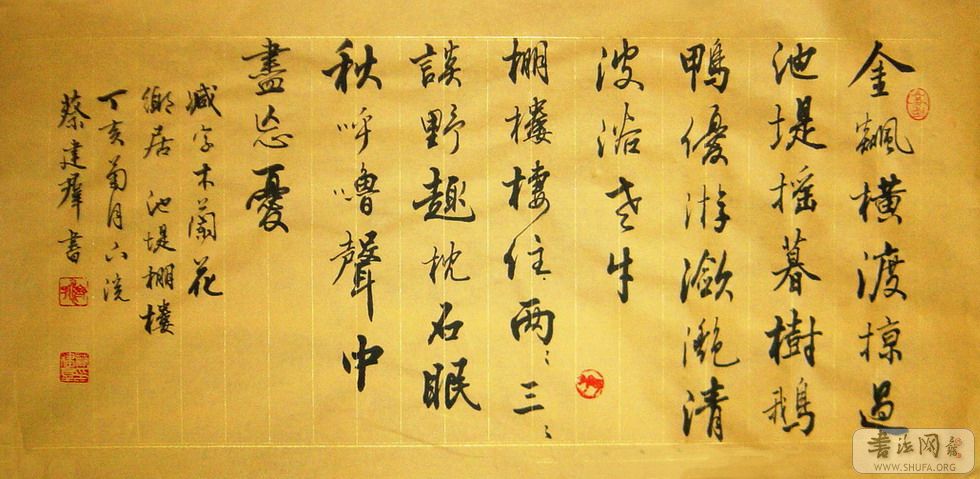 金飆橫渡掠過
池堤搖暮樹鵝
鴨優游瀲灧清
波浴老牛
棚樓樓住兩、三、
談野趣枕石眠
秋呼嚕聲中
盡忘憂
减字木蘭花
鄉居 池堤棚樓
丁亥菊月六浣
蔡建群書
書法网
WWW.SHUFA.ORG